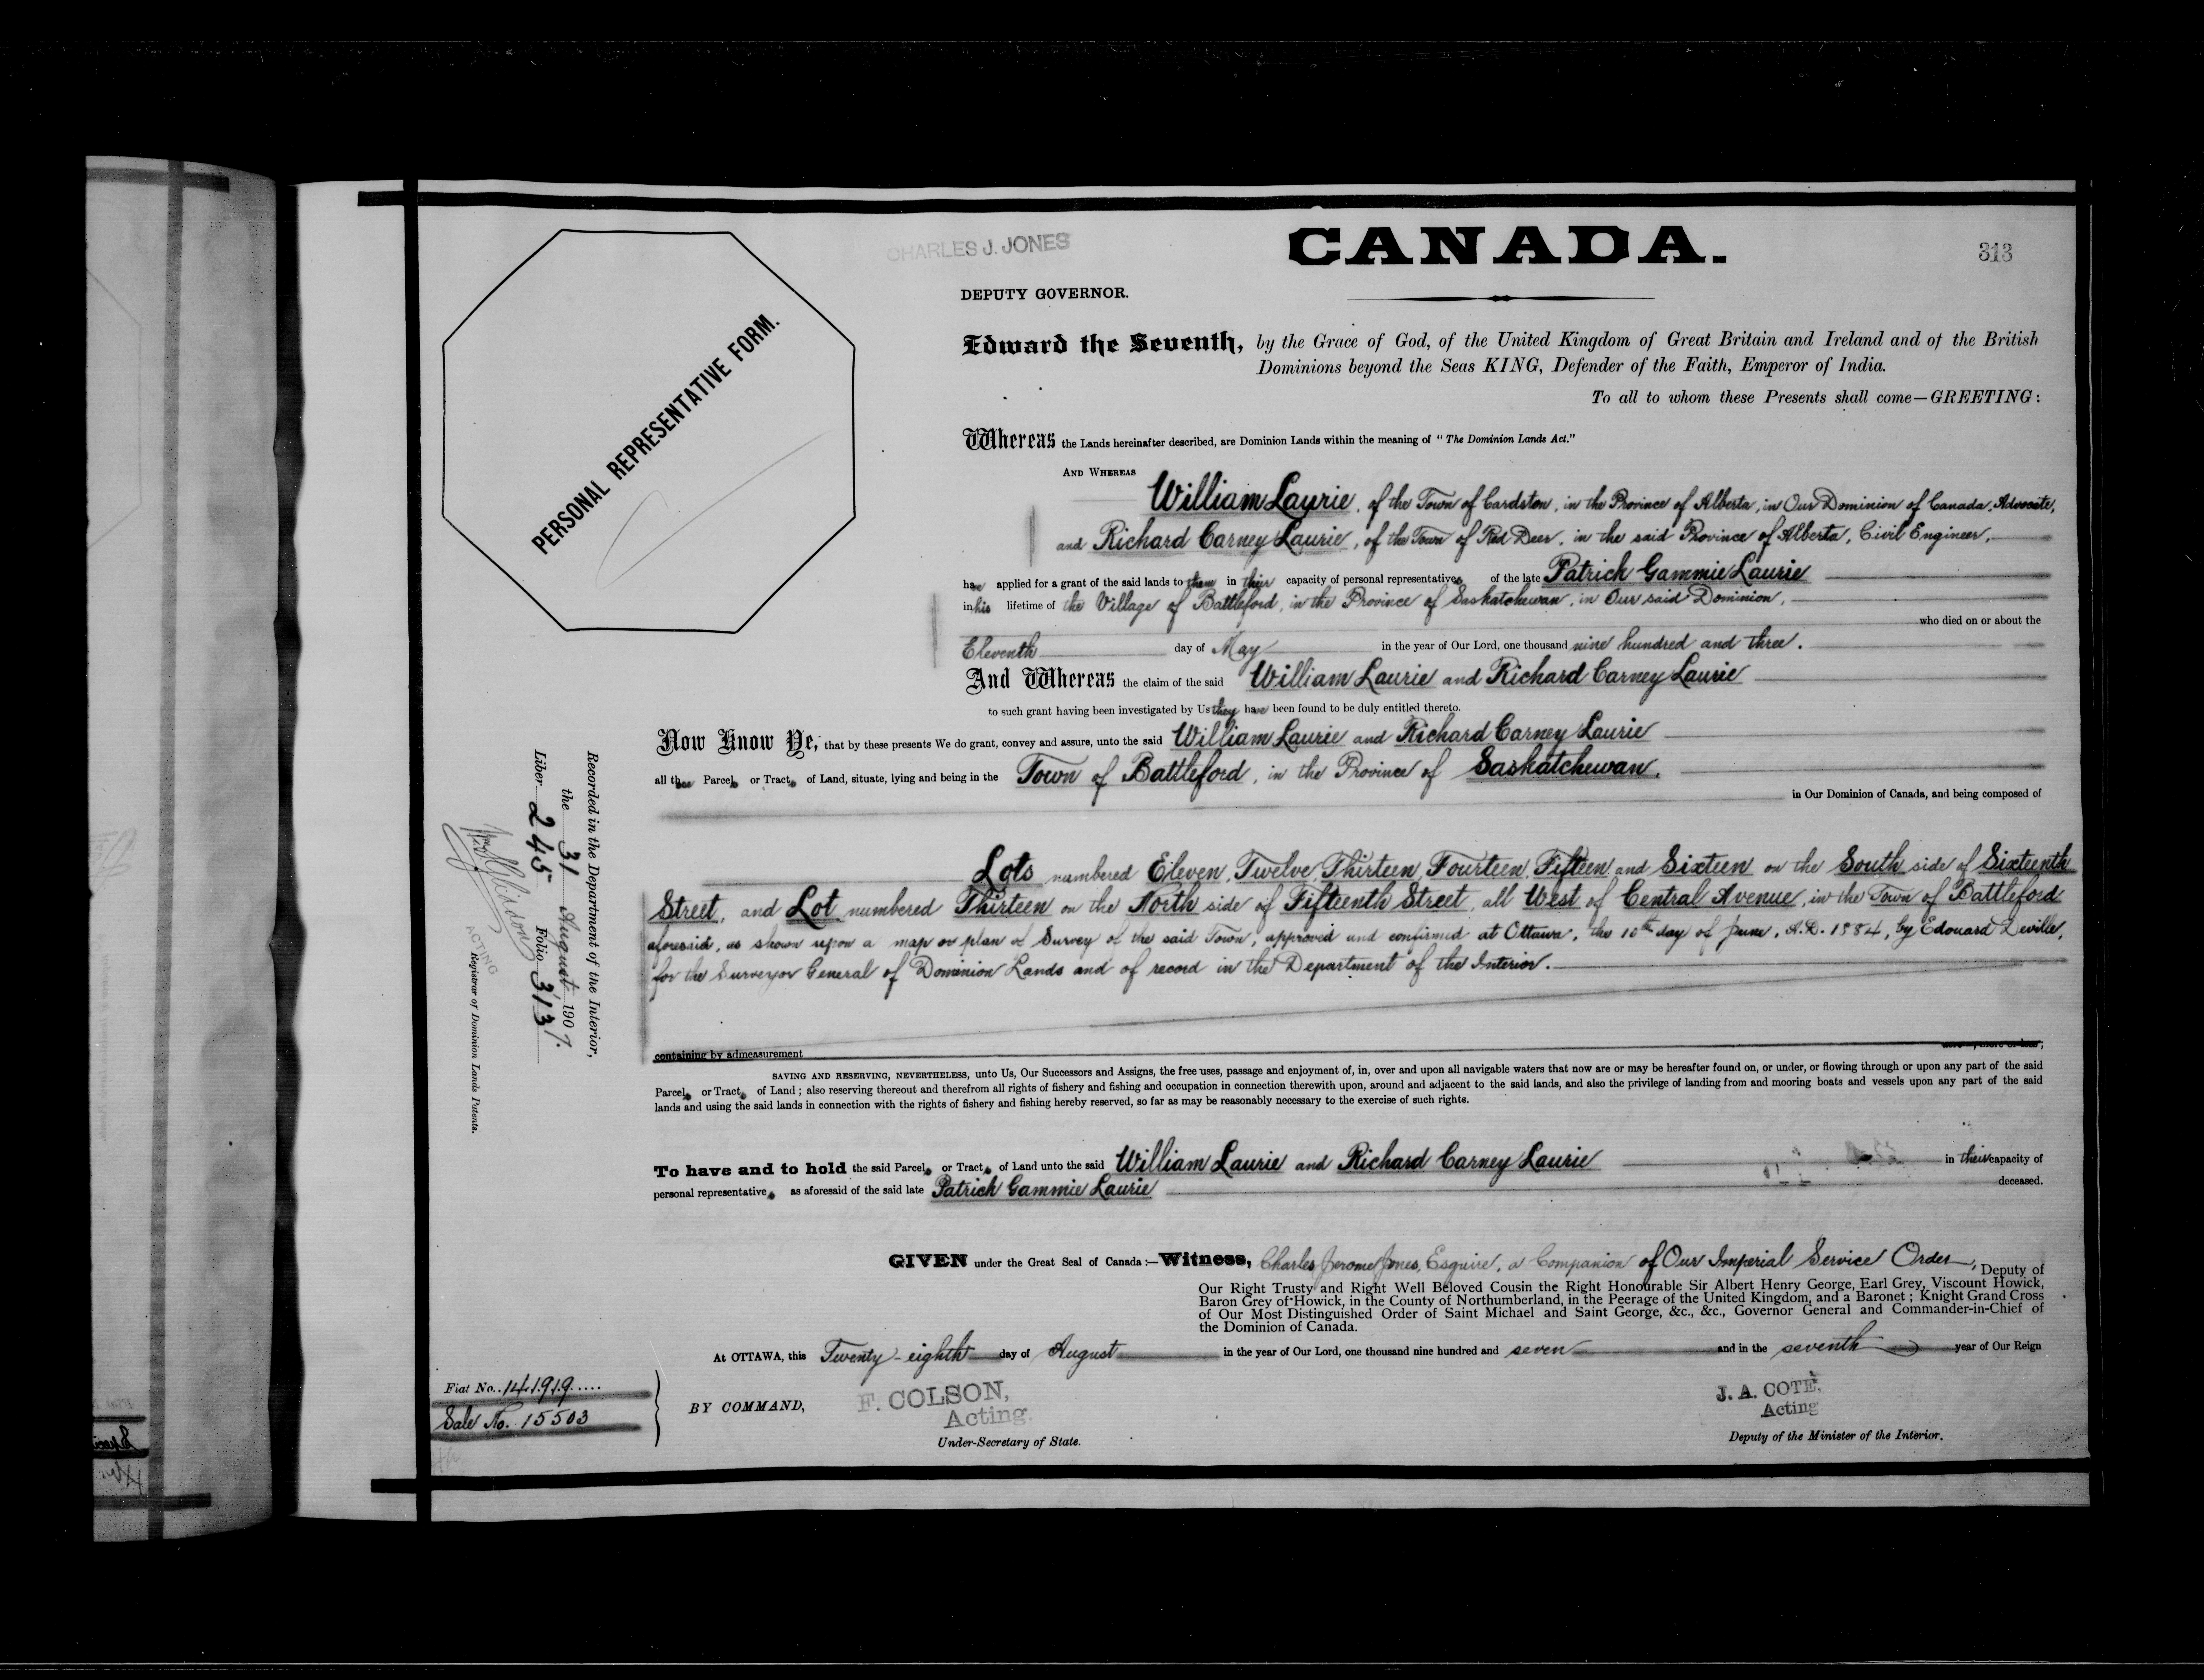 CHARLES J. JONES
CANADA.
313
DEPUTY GOVERNOR.
PERSONAL REPRESENTATIVE FORM.
Edward the Seventh, by the Grace of God, of the United Kingdom of Great Britain and Ireland and of the British
Dominions beyond the Seas KING, Defender of the Faith, Emperor of India.
To all to whom these Presents shall come—GREETING:
Whereas the Lands hereinafter described, are Dominion Lands within the meaning of "The Dominion Lands Act."
AND WHEREAS
William Laurie, of the Town of Cardston, in the Province of Alberta, in Our Dominion of Canada, Advocate,
and Richard Carney Laurie, of the Town of Red Deer, in the said Province of Alberta, Civil Engineer,
have applied for a grant of the said lands to them in their capacity of personal representatives of the late Patrick Gammie Laurie
in his lifetime of the Village of Battleford, in the Province of Saskatchewan, in Our said Dominion,
who died on or about the
Eleventh day of May in the year of Our Lord, one thousand nine hundred and three.
And Whereas the claim of the said William Laurie and Richard Carney Laurie
to such grant having been investigated by Us they have been found to be duly entitled thereto.
Now Know Ye, that by these presents We do grant, convey and assure, unto the said William Laurie and Richard Carney Laurie
all those Parcels or Tracts of Land, situate, lying and being in the Town of Battleford, in the Province of Saskatchewan,
in Our Dominion of Canada, and being composed of
Lots numbered Eleven, Twelve, Thirteen, Fourteen, Fifteen and Sixteen on the South side of Sixteenth
Street, and Lot numbered Thirteen on the North side of Fifteenth Street, all West of Central Avenue, in the Town of Battleford
aforesaid, as shown upon a map or plan of Survey of the said Town, approved and confirmed at Ottawa, the 10th day of June, A.D. 1884, by Edouard Deville,
for the Surveyor General of Dominion Lands and of record in the Department of the Interior.
containing by admeasurement acres, more or less;
SAVING AND RESERVING, NEVERTHELESS, unto Us, Our Successors and Assigns, the free uses, passage and enjoyment of, in, over and upon all navigable waters that now are or may be hereafter found on, or under, or flowing through or upon any part of the said
Parcels or Tracts of Land; also reserving thereout and therefrom all rights of fishery and fishing and occupation in connection therewith upon, around and adjacent to the said lands, and also the privilege of landing from and mooring boats and vessels upon any part of the said
lands and using the said lands in connection with the rights of fishery and fishing hereby reserved, so far as may be reasonably necessary to the exercise of such rights.
To have and to hold the said Parcels or Tracts of Land unto the said William Laurie and Richard Carney Laurie in their capacity of
personal representatives as aforesaid of the said late Patrick Gammie Laurie deceased.
GIVEN under the Great Seal of Canada:—Witness, Charles Jerome Jones, Esquire, a Companion of Our Imperial Service Order, Deputy of
Our Right Trusty and Right Well Beloved Cousin the Right Honourable Sir Albert Henry George, Earl Grey, Viscount Howick,
Baron Grey of Howick, in the County of Northumberland, in the Peerage of the United Kingdom, and a Baronet; Knight Grand Cross
of Our Most Distinguished Order of Saint Michael and Saint George, &c., &c., Governor General and Commander-in-Chief of
the Dominion of Canada.
At OTTAWA, this Twenty-eighth day of August in the year of Our Lord, one thousand nine hundred and seven and in the seventh year of Our Reign
Fiat No. 141919
Sale No. 15503
BY COMMAND,
F. COLSON,
Acting
Under-Secretary of State.
J. A. COTÉ,
Acting
Deputy of the Minister of the Interior.
Recorded in the Department of the Interior,
the 31 August 1907.
Liber 245 Folio 313
ACTING
Registrar of Dominion Lands Patents.